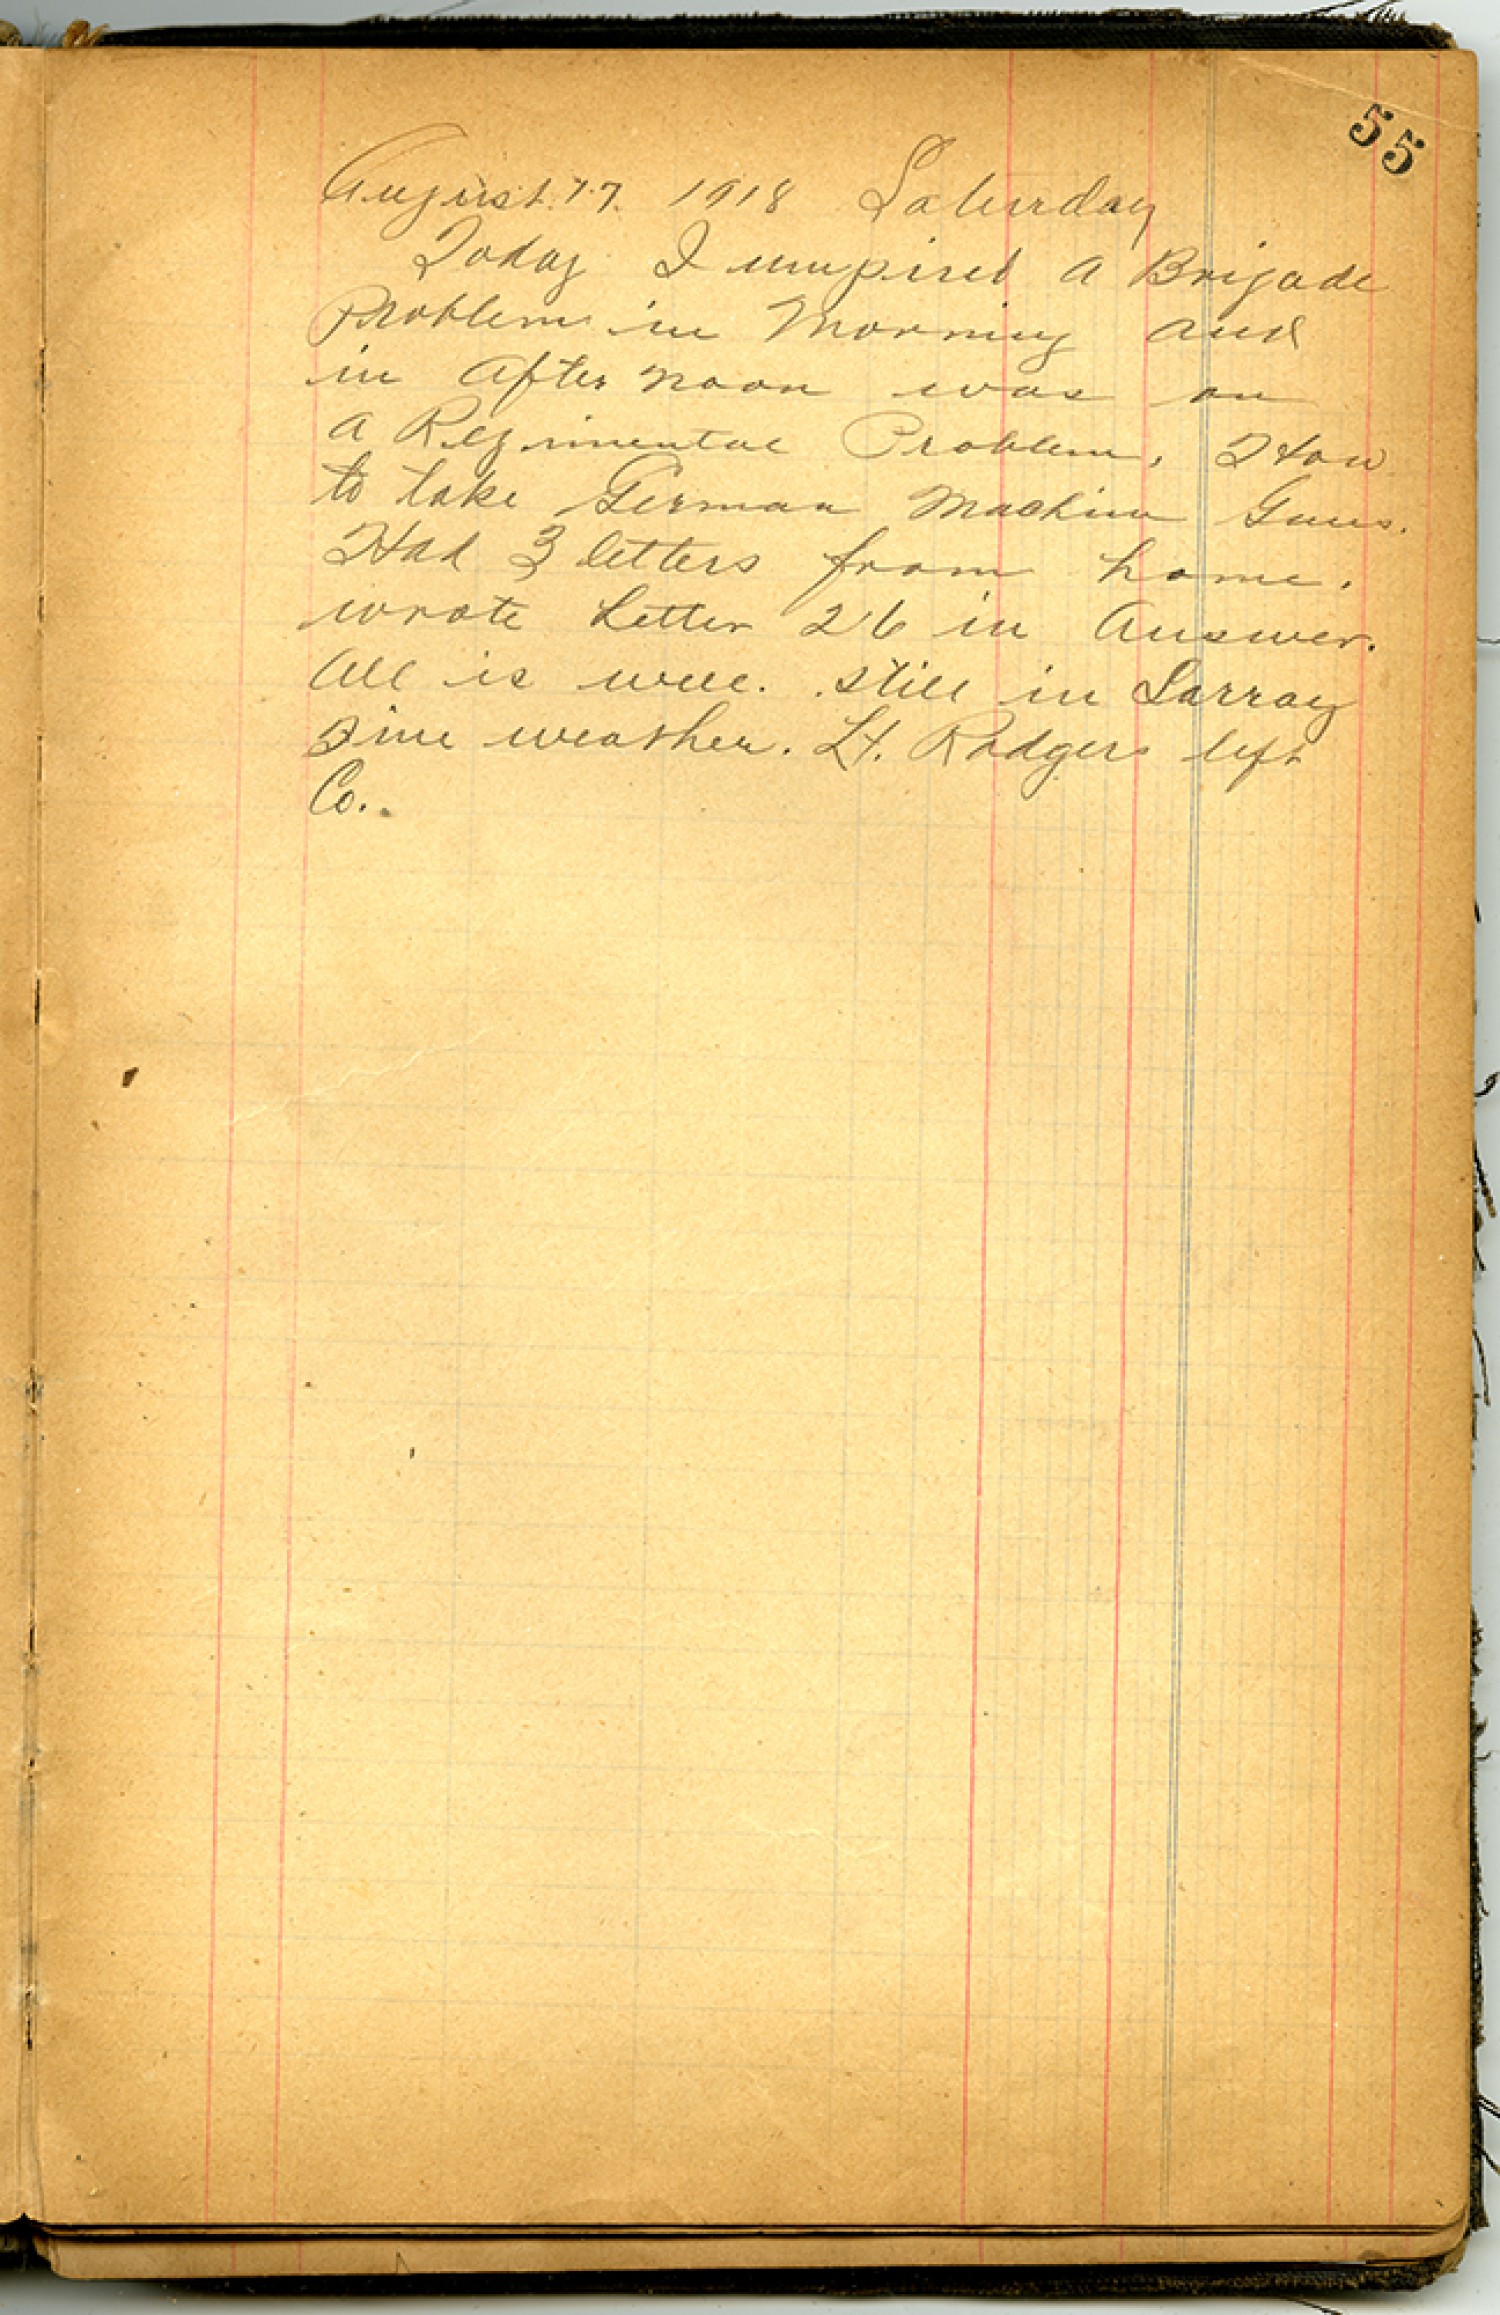 55
August 17. 1918 Saturday
Today I umpired a Brigade
Problem in Morning and
in After noon was on
a Regimental Problem, How
to take German Machine Guns.
Had 3 letters from home.
wrote Letter 26 in Answer.
All is well. still in Larray
Fine weather. Lt. Rodgers left
Co.